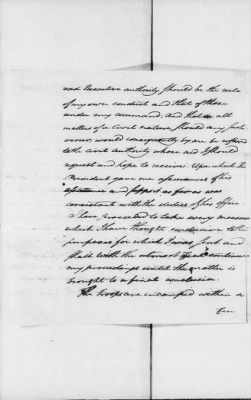 and Executive authority should be the rule
of my own conduct and that of those
under my command. And that all
matters of a civil nature should any such
occur, would consequently by me be referred
to the civil authority whose aid I should
request and hope to receive. Upon which the
President gave me assurances of his
assistance and support as far as was
consistent with the duties of his office.
I have proceeded to take every measure
which I have thought conducive to the
purposes for which I was sent and
shall with the utmost zeal continue
my proceedings until the matter is
brought to a final conclusion.
The troops are encamped within a